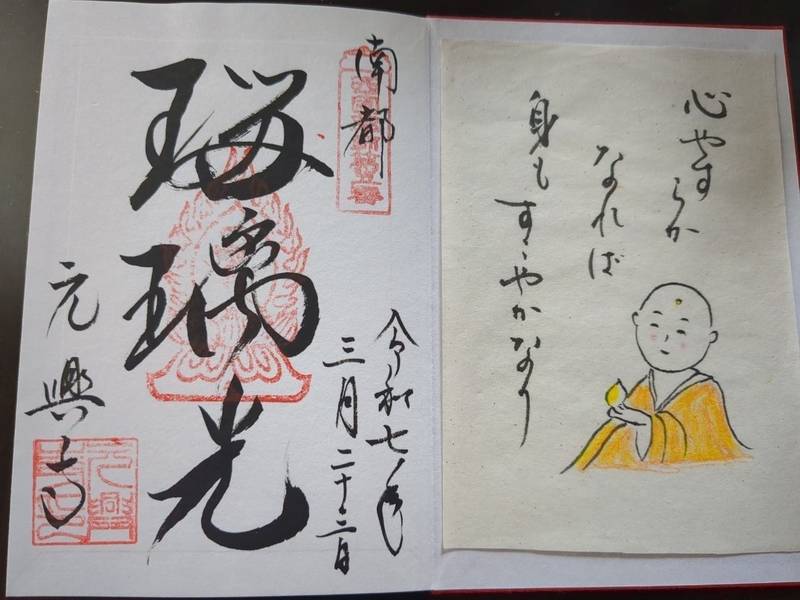 心やすらか
なれば
身もすこやかなり
南都
令和七年
三月二十二日
瑠璃光
元興寺